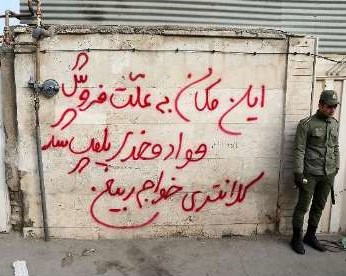 این مکان به علت فروش
مواد مخدر پلمپ شد
کلانتری خواجه ربیع